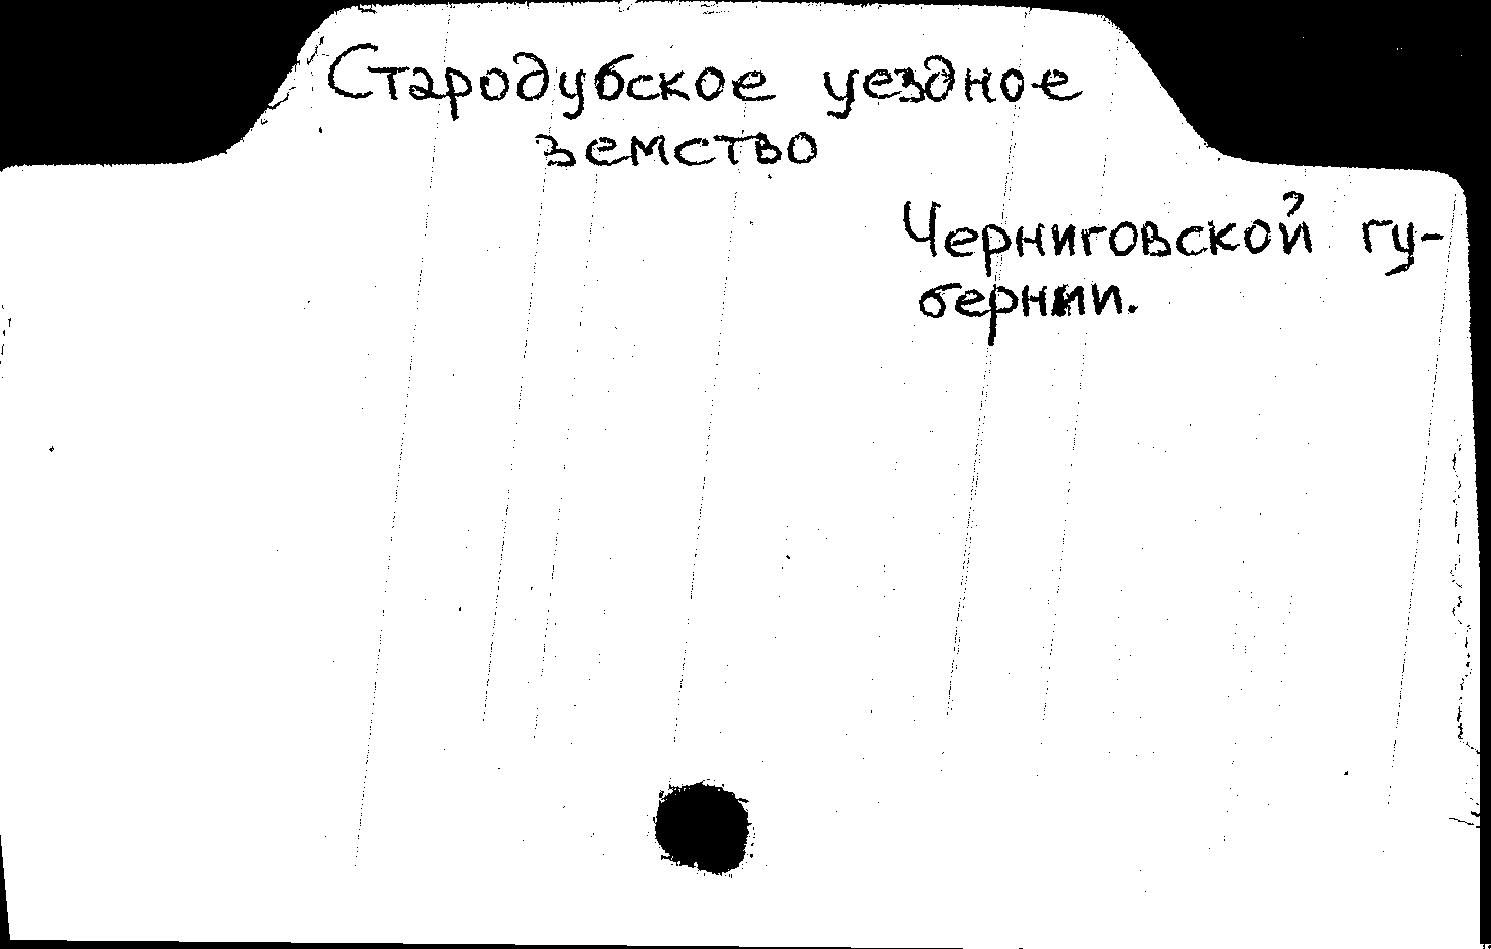 Стародубское уездное
земство
Черниговской гу-
бернии.